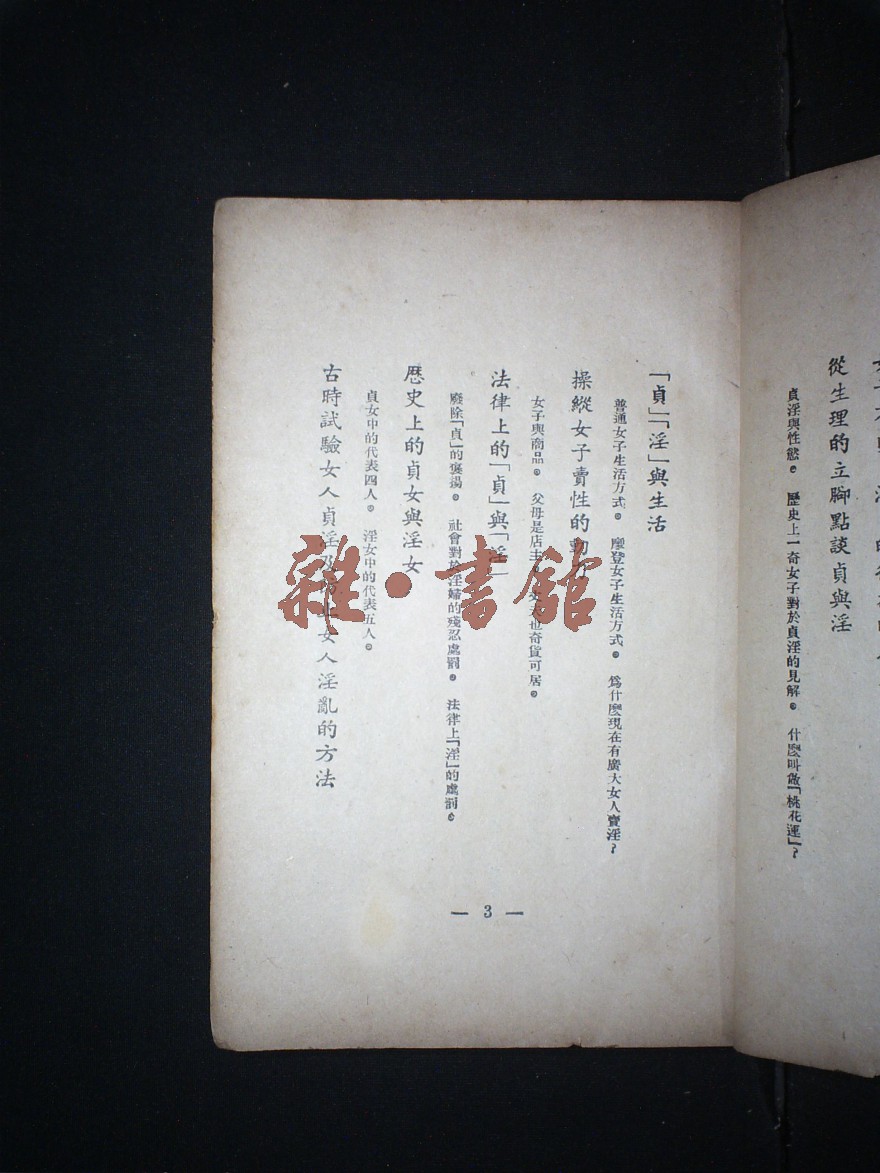 從生理的立腳點談貞與淫
貞淫與性慾。 歷史上一奇女子對於貞淫的見解。 什麼叫做「桃花運」?
「貞」「淫」與生活
普通女子生活方式。 摩登女子生活方式。 爲什麼現在有廣大女人賣淫?
操縱女子賣性的動力
女子與商品。 父母是店主 也奇貨可居。
法律上的「貞」與「淫」
廢除「貞」的褒揚。 社會對於淫婦的殘忍處罰。 法律上「淫」的處罰。
歷史上的貞女與淫女
貞女中的代表四人。 淫女中的代表五人。
古時試驗女人貞淫及防止女人淫亂的方法
— 3 —
雜·書館